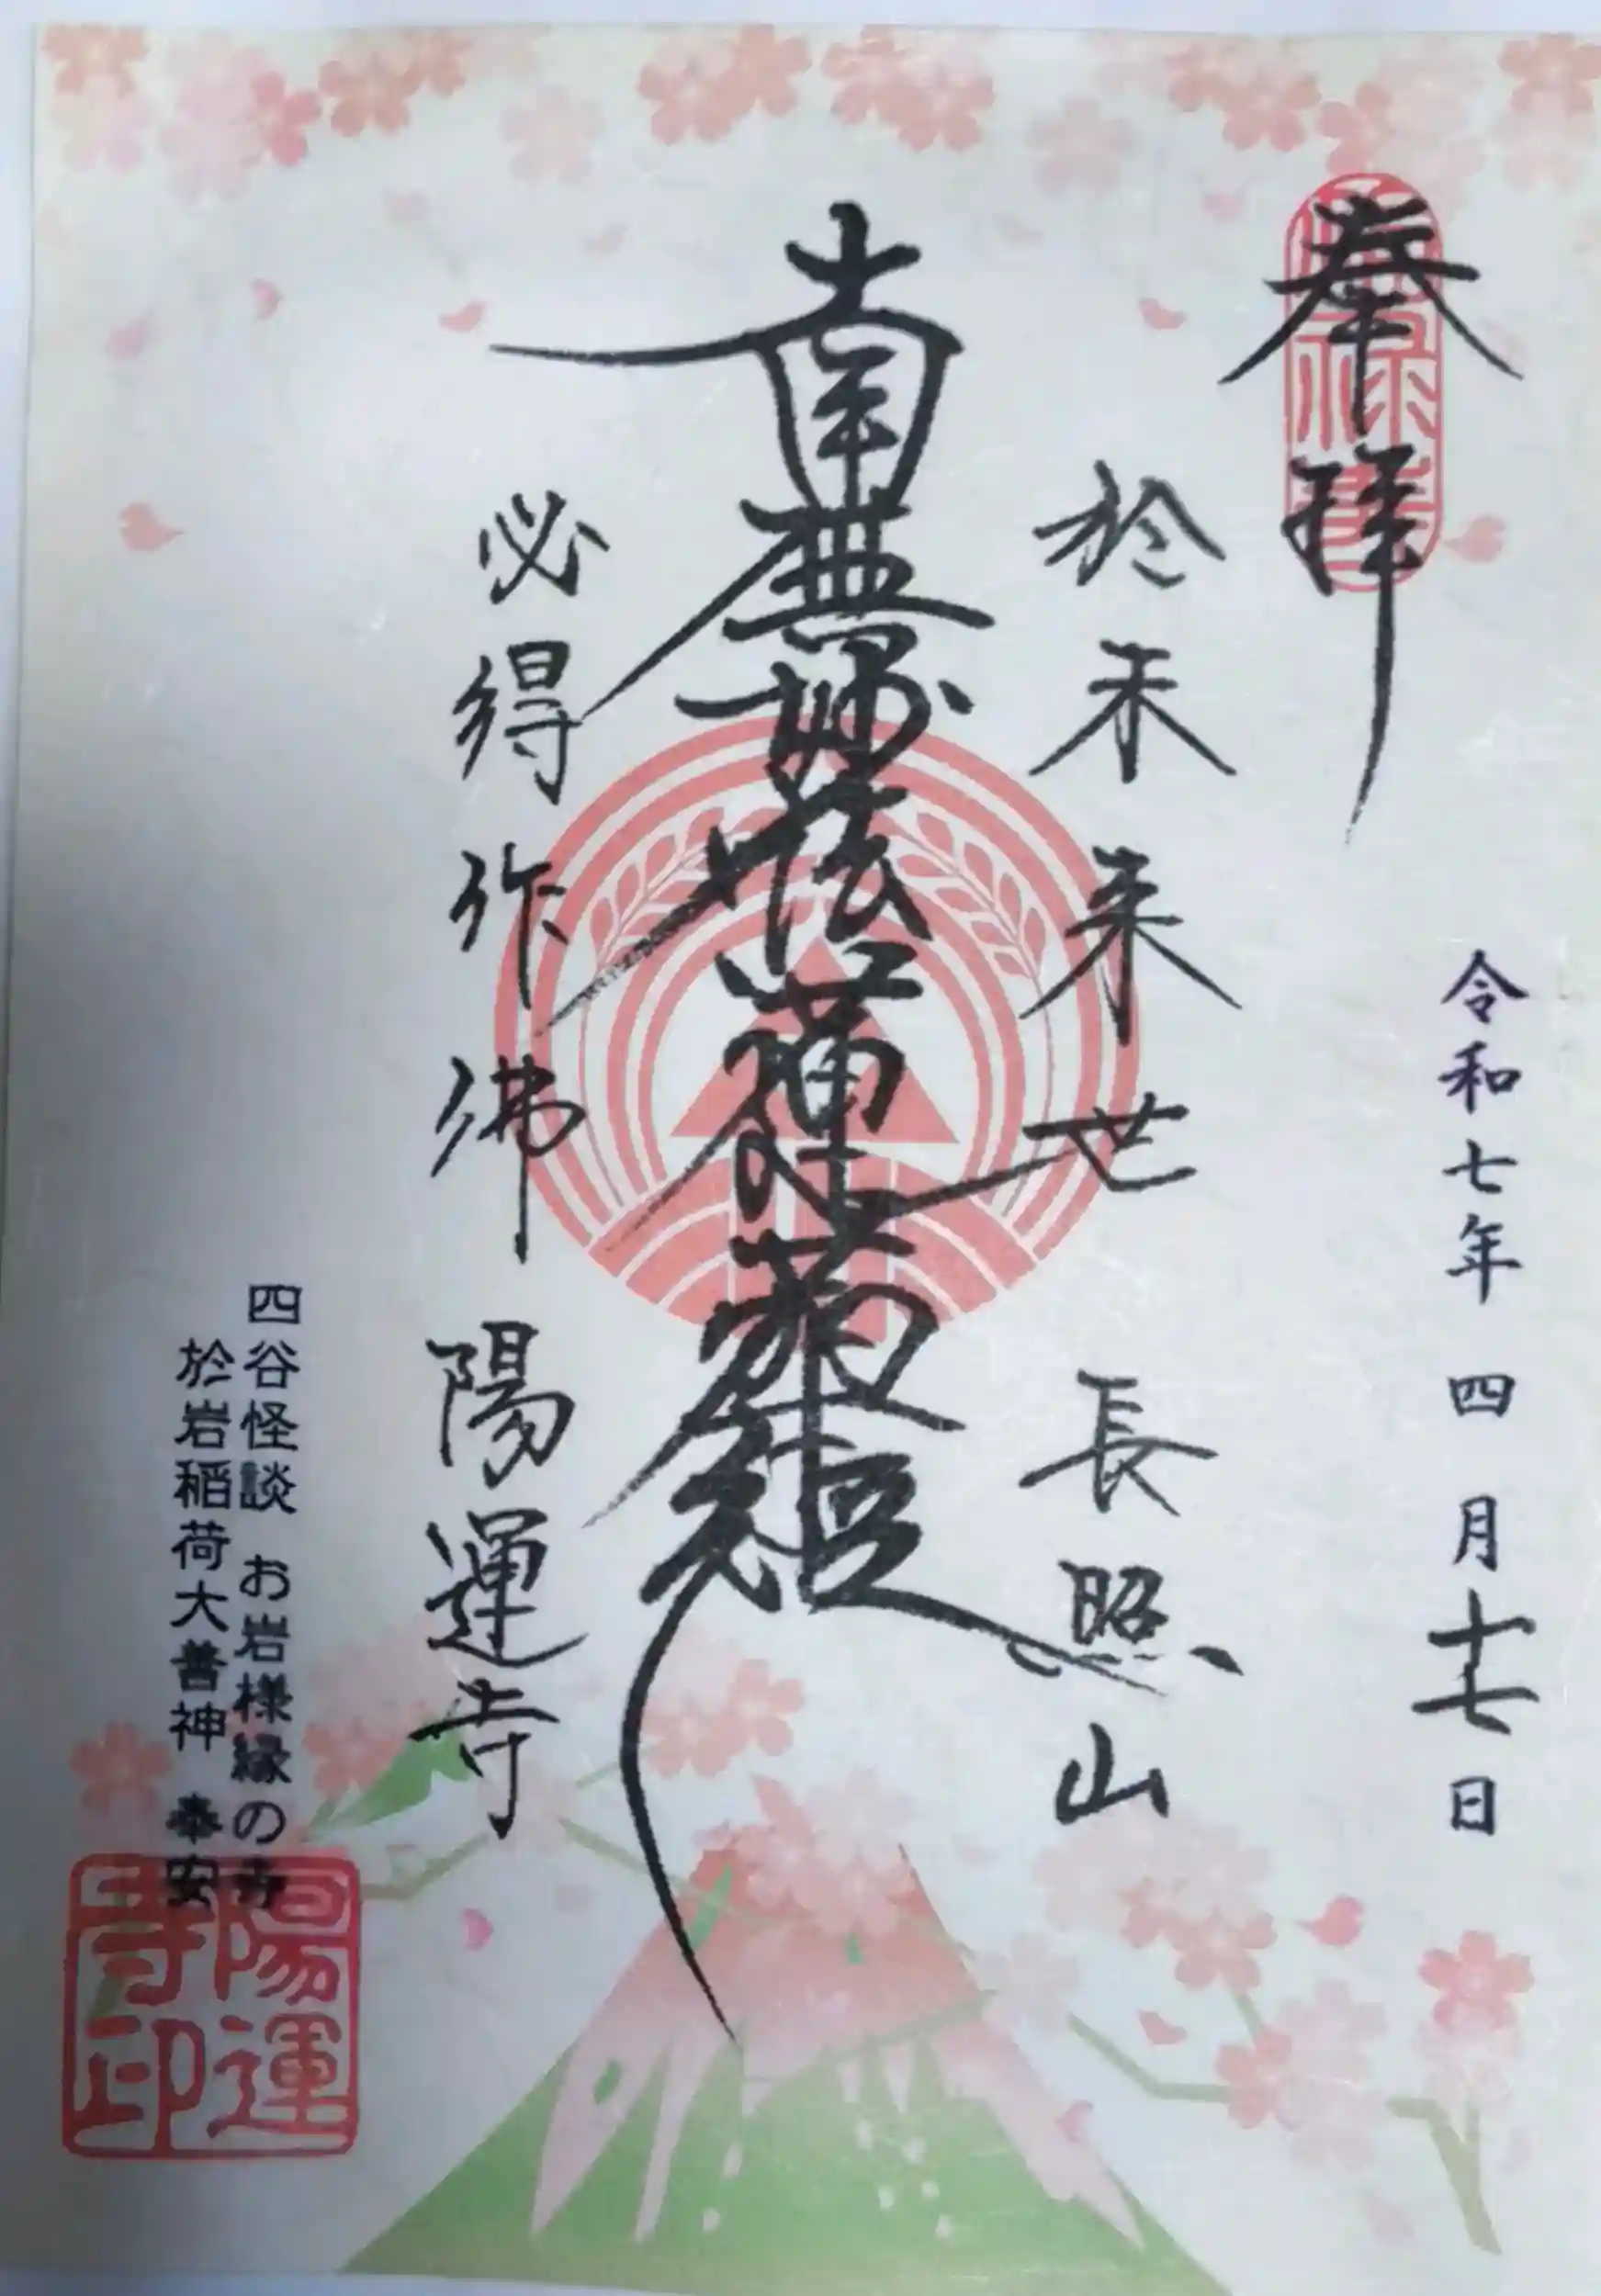 奉拝
令和七年四月十七日
於未来世 長照山
南無妙法蓮華経
必得作佛 陽運寺
四谷怪談 お岩様縁の寺
於岩稲荷大善神 奉安
陽運
寺印